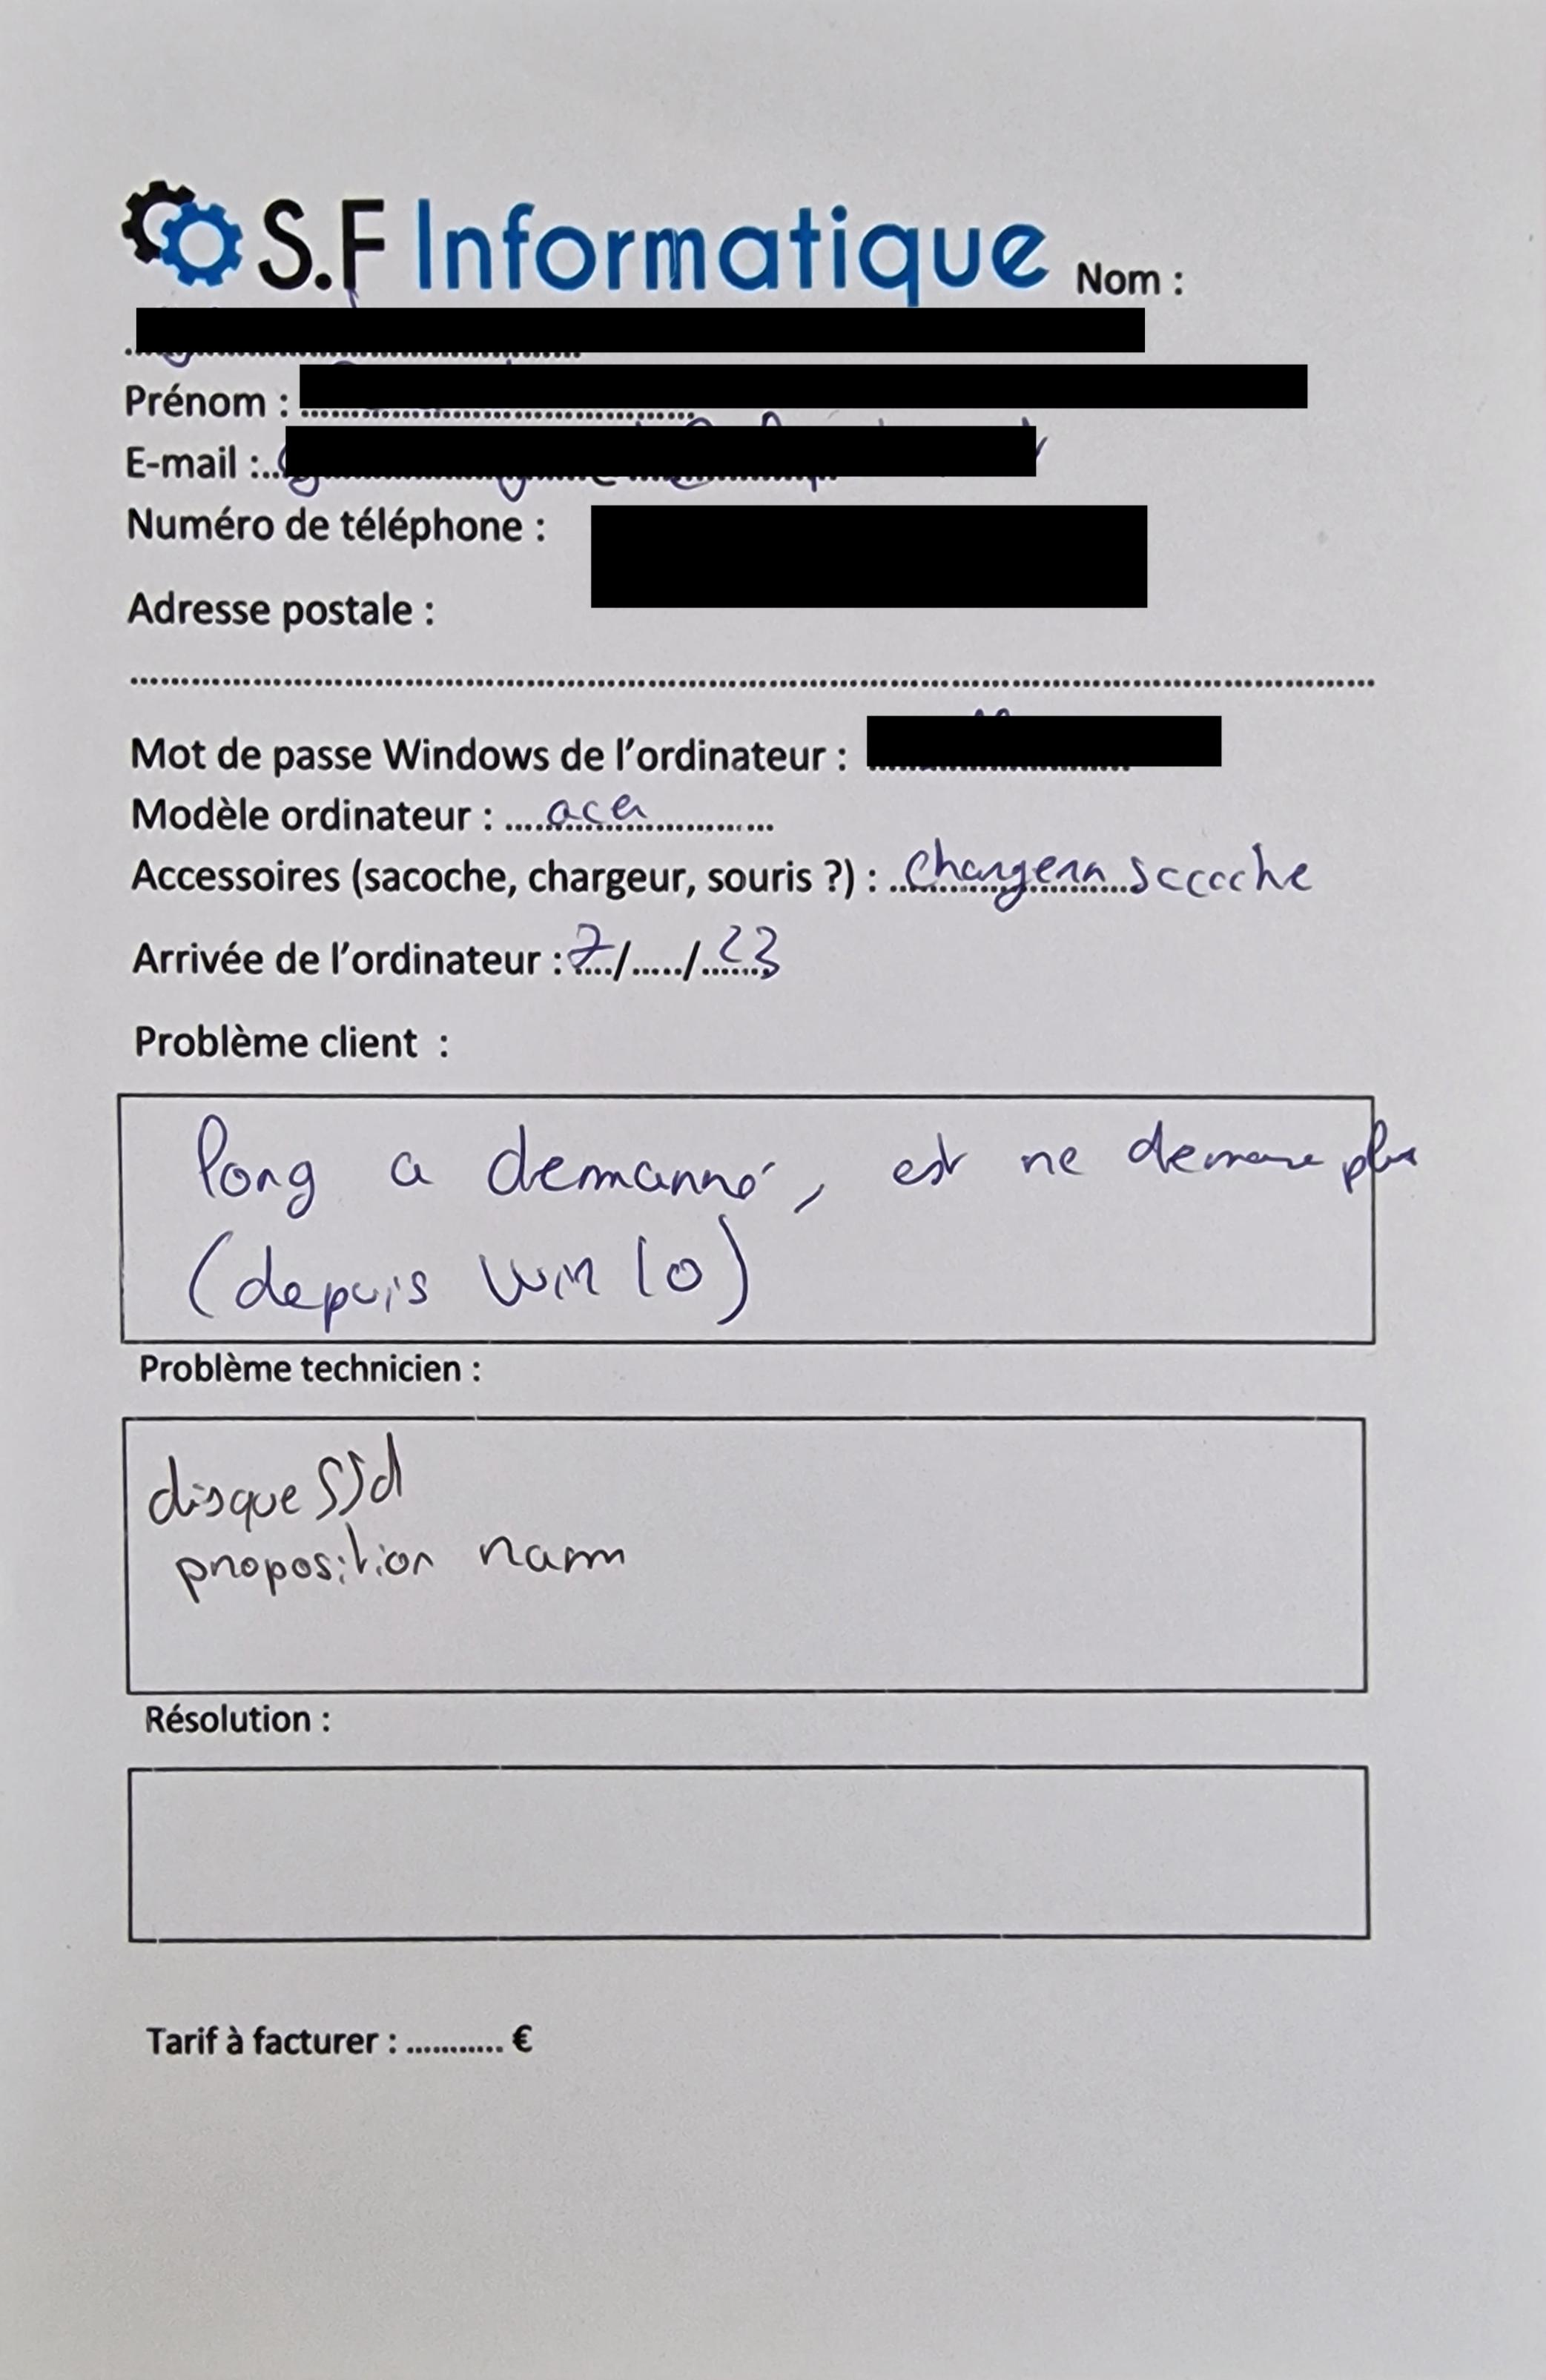 S.F Informatique Nom :
Prénom :
E-mail :
Numéro de téléphone :
Adresse postale :
Mot de passe Windows de l'ordinateur :
Modèle ordinateur : acer
Accessoires (sacoche, chargeur, souris ?) : chargeur saccoche
Arrivée de l'ordinateur : 7/...../23
Problème client :
long a demarré, est ne demare plus
(depuis Win 10)
Problème technicien :
disque SSd
proposition ram
Résolution :
Tarif à facturer : ........... €